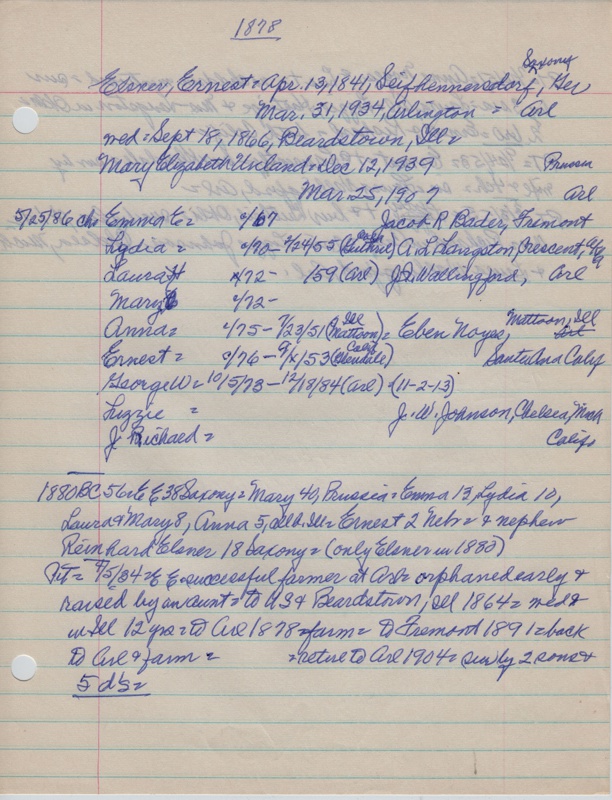 1878
Elsner, Ernest = Apr. 13, 1841, Seifhennersdorf, Saxony, Ger
Mar. 31, 1934, Arlington = Arl
wed = Sept 18, 1866, Beardstown, Ill =
Mary Elizabeth = Dec, 12, 1939 Prussia
Mar. 25, 1907 Arl
5/25/86 chr Emma E = 0/67 Jacob R Bader, Fremont
Lydia = 0/70 - 7/24/55 (Guthrie) A. L. Langston, Crescent,
Laura = 0/72 - /59 (Arl) J. I. Wallingford, Arl
Mary = 0/72 -
Anna = 0/75 - 7/23/51 (Mattoon Ill) = Eben Noyes, Mattoon, Ill
Ernest = 0/76 - 9/x/53 (Glendale Calif) Santa Ana Calif
George W = 10/5/73 - 12/18/84 (Arl) = (11-2-13)
Lizzie = J. W. Johnson, Chelsea,
J Richard = Calif
1880 DC 56 = E E 38 Saxony = Mary 40, Prussia = Emma 13, Lydia 10,
Laura & Mary 8, Anna 5, all b. Ill = Ernest 2 Neb = & nephew
Reinhard Elsner 18 Saxony = (only Elsner in 1880)
4/5/34 = E E = successful farmer at Arl = orphaned early &
raised by an aunt = to US & Beardstown, Ill 1864 = wed &
in Ill 12 yrs = to Arl 1878 = farm = to Fremont 1891 = back
to Arl & farm = = retire to Arl 1904 = surv by 2 sons &
5 d's =